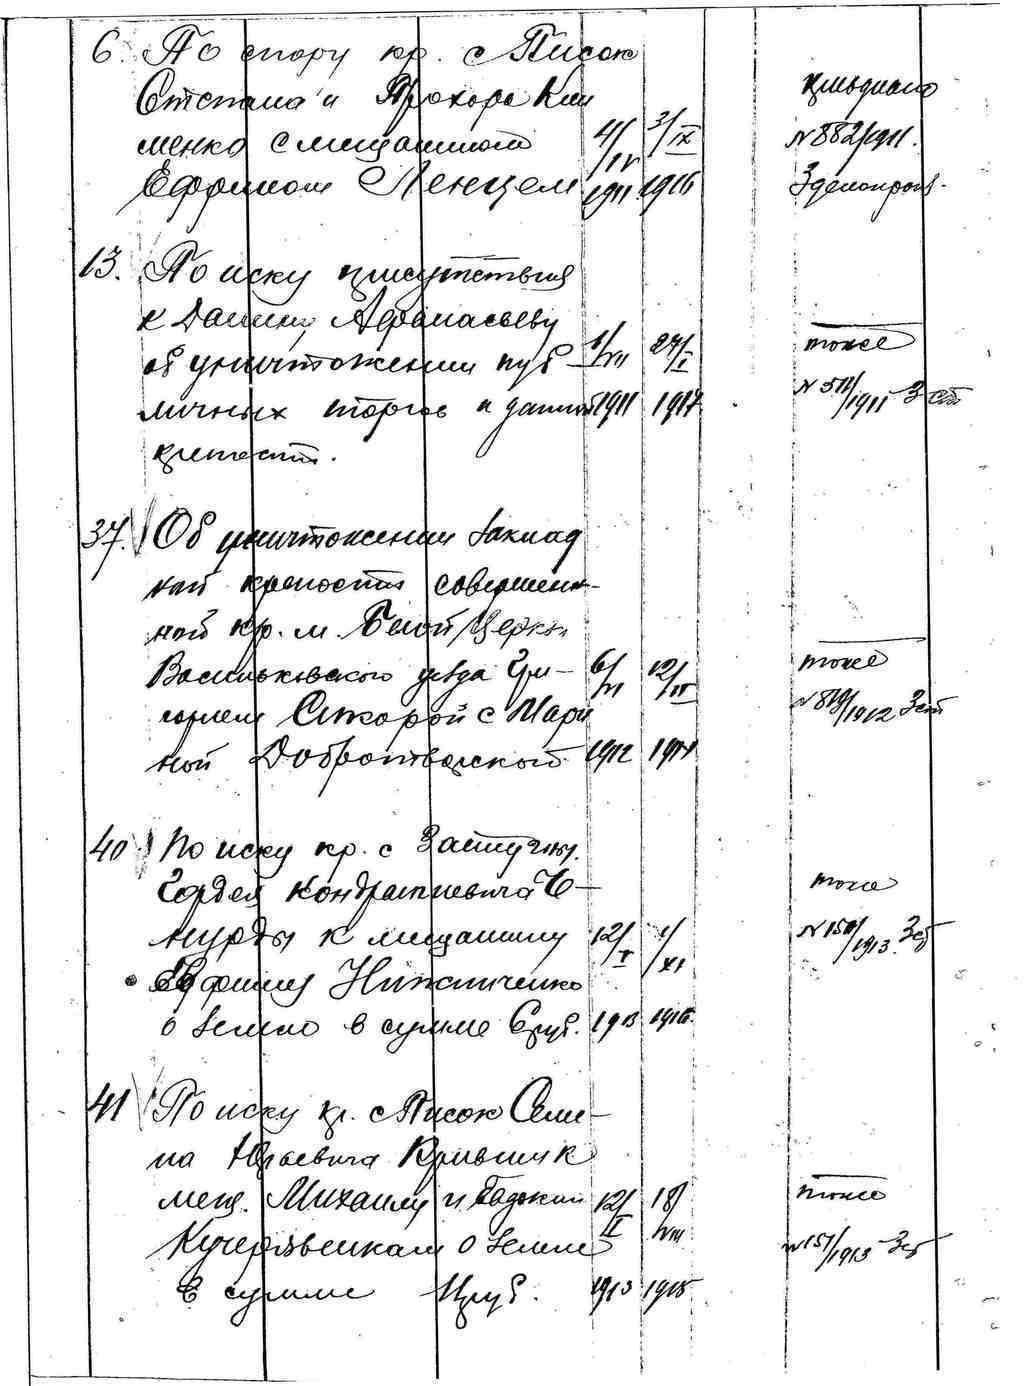 6. По спору кр. с Писок
Степана и Прохора Кли
менко с мещанином
Ефримом
4/IV 1911 3/IX 1916
№ 882/1911.
3 делопроиз.
13. По иску присутствия
к Данилу Афанасьеву
об уничтожении пуб
личных торгов и данной
крепости.
1/VII 1911 27/I 1917
тоже
№ 511/1911 3 ст
37. Об уничтожении заклад
ной крепости совершен-
ной кр. м. Белой Церкви
Васильковского уезда Гри-
горием Сикорой с Мари
ной Добротворской
6/VI 1912
тоже
1912 3 ст
40 По иску кр. с
Гордея Кондратиевича Че-
мурды к мещанину
Ефиму Никитченко
о земле в сумме 6 руб.
12/I 1913 1/XI 1916
тоже
№ 150/1913. 3 ст
41 По иску кр. с Писок Семе-
на Юрьевича Крившик
мещ. Михаилу и
Кучерявенкам о земле
в сумме руб.
12/II 1913 18/VIII 1915
тоже
№ 151/1913 3 ст